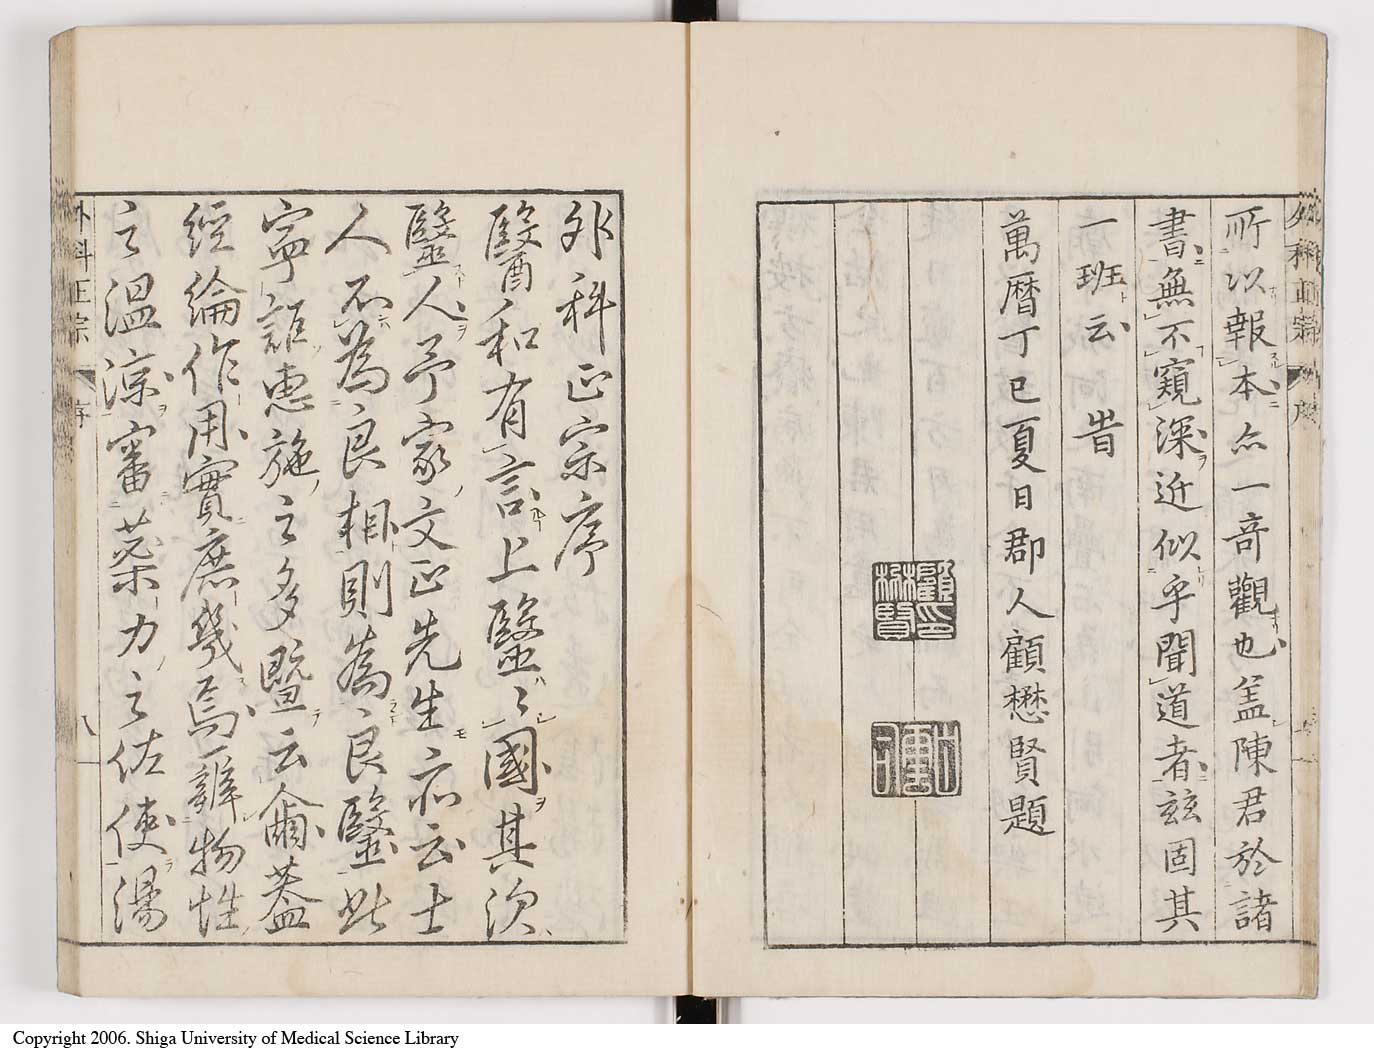 所以報本亦一竒觀也盖陳君於諸
書無不窺深近似乎聞道者玆固其
一班云 旹
萬曆丁巳夏日郡人顧懋賢題
外科正宗序
醫和有言上醫〻國其次
醫人予家文正先生亦云士
人不為良相則為良醫此
寧詎惠施之多暨云爾葢
經綸作用實庶幾焉辨物性
之温涼審藥力之佐使湯
外科正宗 序 八
Copyright 2006. Shiga University of Medical Science Library